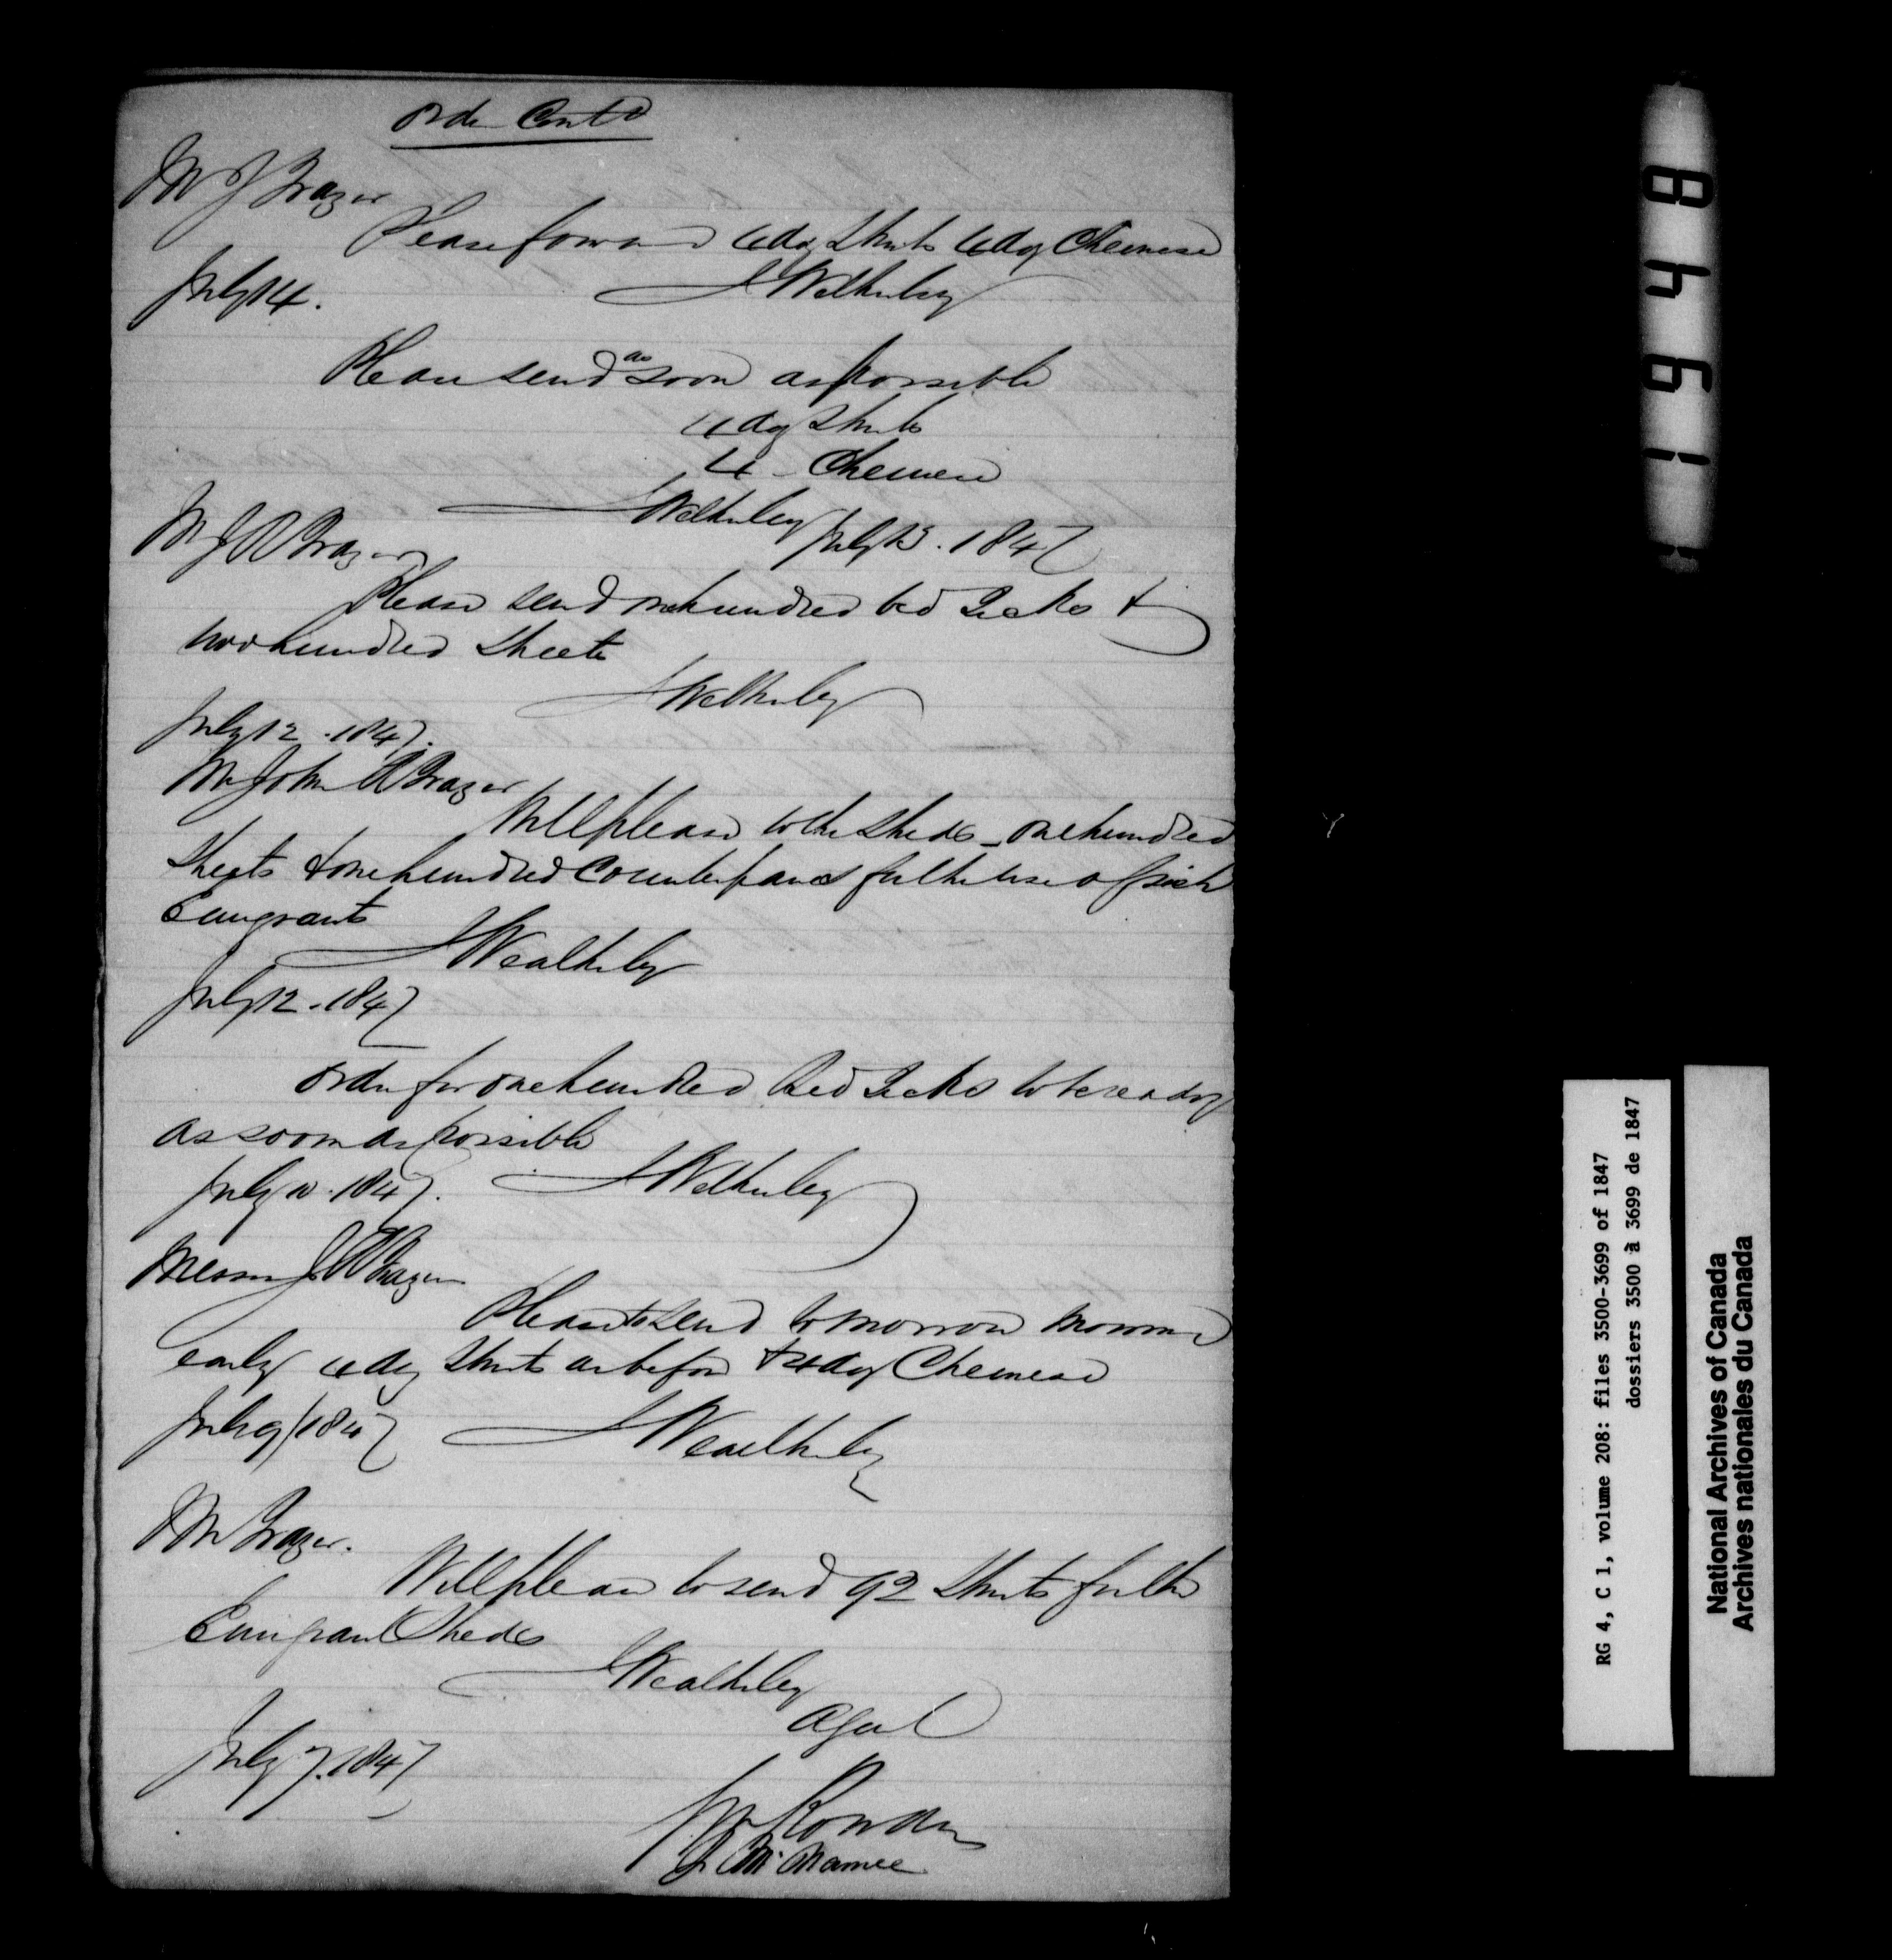 Order Contd
Mr J Frazer
Please forward 4 doz Shirts 4 doz Chemese
July 14. J Wetherley
Please send as soon as possible
4 doz Shirts
4 - Chemese
J Wetherley July 13. 1847
Mr J R Frazer
Please send one hundred bed Ticks &
two hundred Sheets
J Wetherley
July 12. 1847.
Mr John R Frazer
Will please to the Sheds - one hundred
Sheets & one hundred Counterpanes for the use of sick
Emigrants
J Weatherley
July 12. 1847
Order for one hundred Bed Ticks to be ready
as soon as possible
July 10. 1847. J Wetherley
Messrs J R Frazer
Please to send tomorrow morning
early 4 doz Shirts as before & 4 doz Chemese
July 9/1847 J Weatherley
Mr Frazer.
Will please to send 92 Shirts for the
Emigrant Sheds
J Weatherley
Agent
July 7. 1847
J McNamee
84491
RG 4, C 1, volume 208: files 3500-3699 of 1847
dossiers 3500 à 3699 de 1847
National Archives of Canada
Archives nationales du Canada